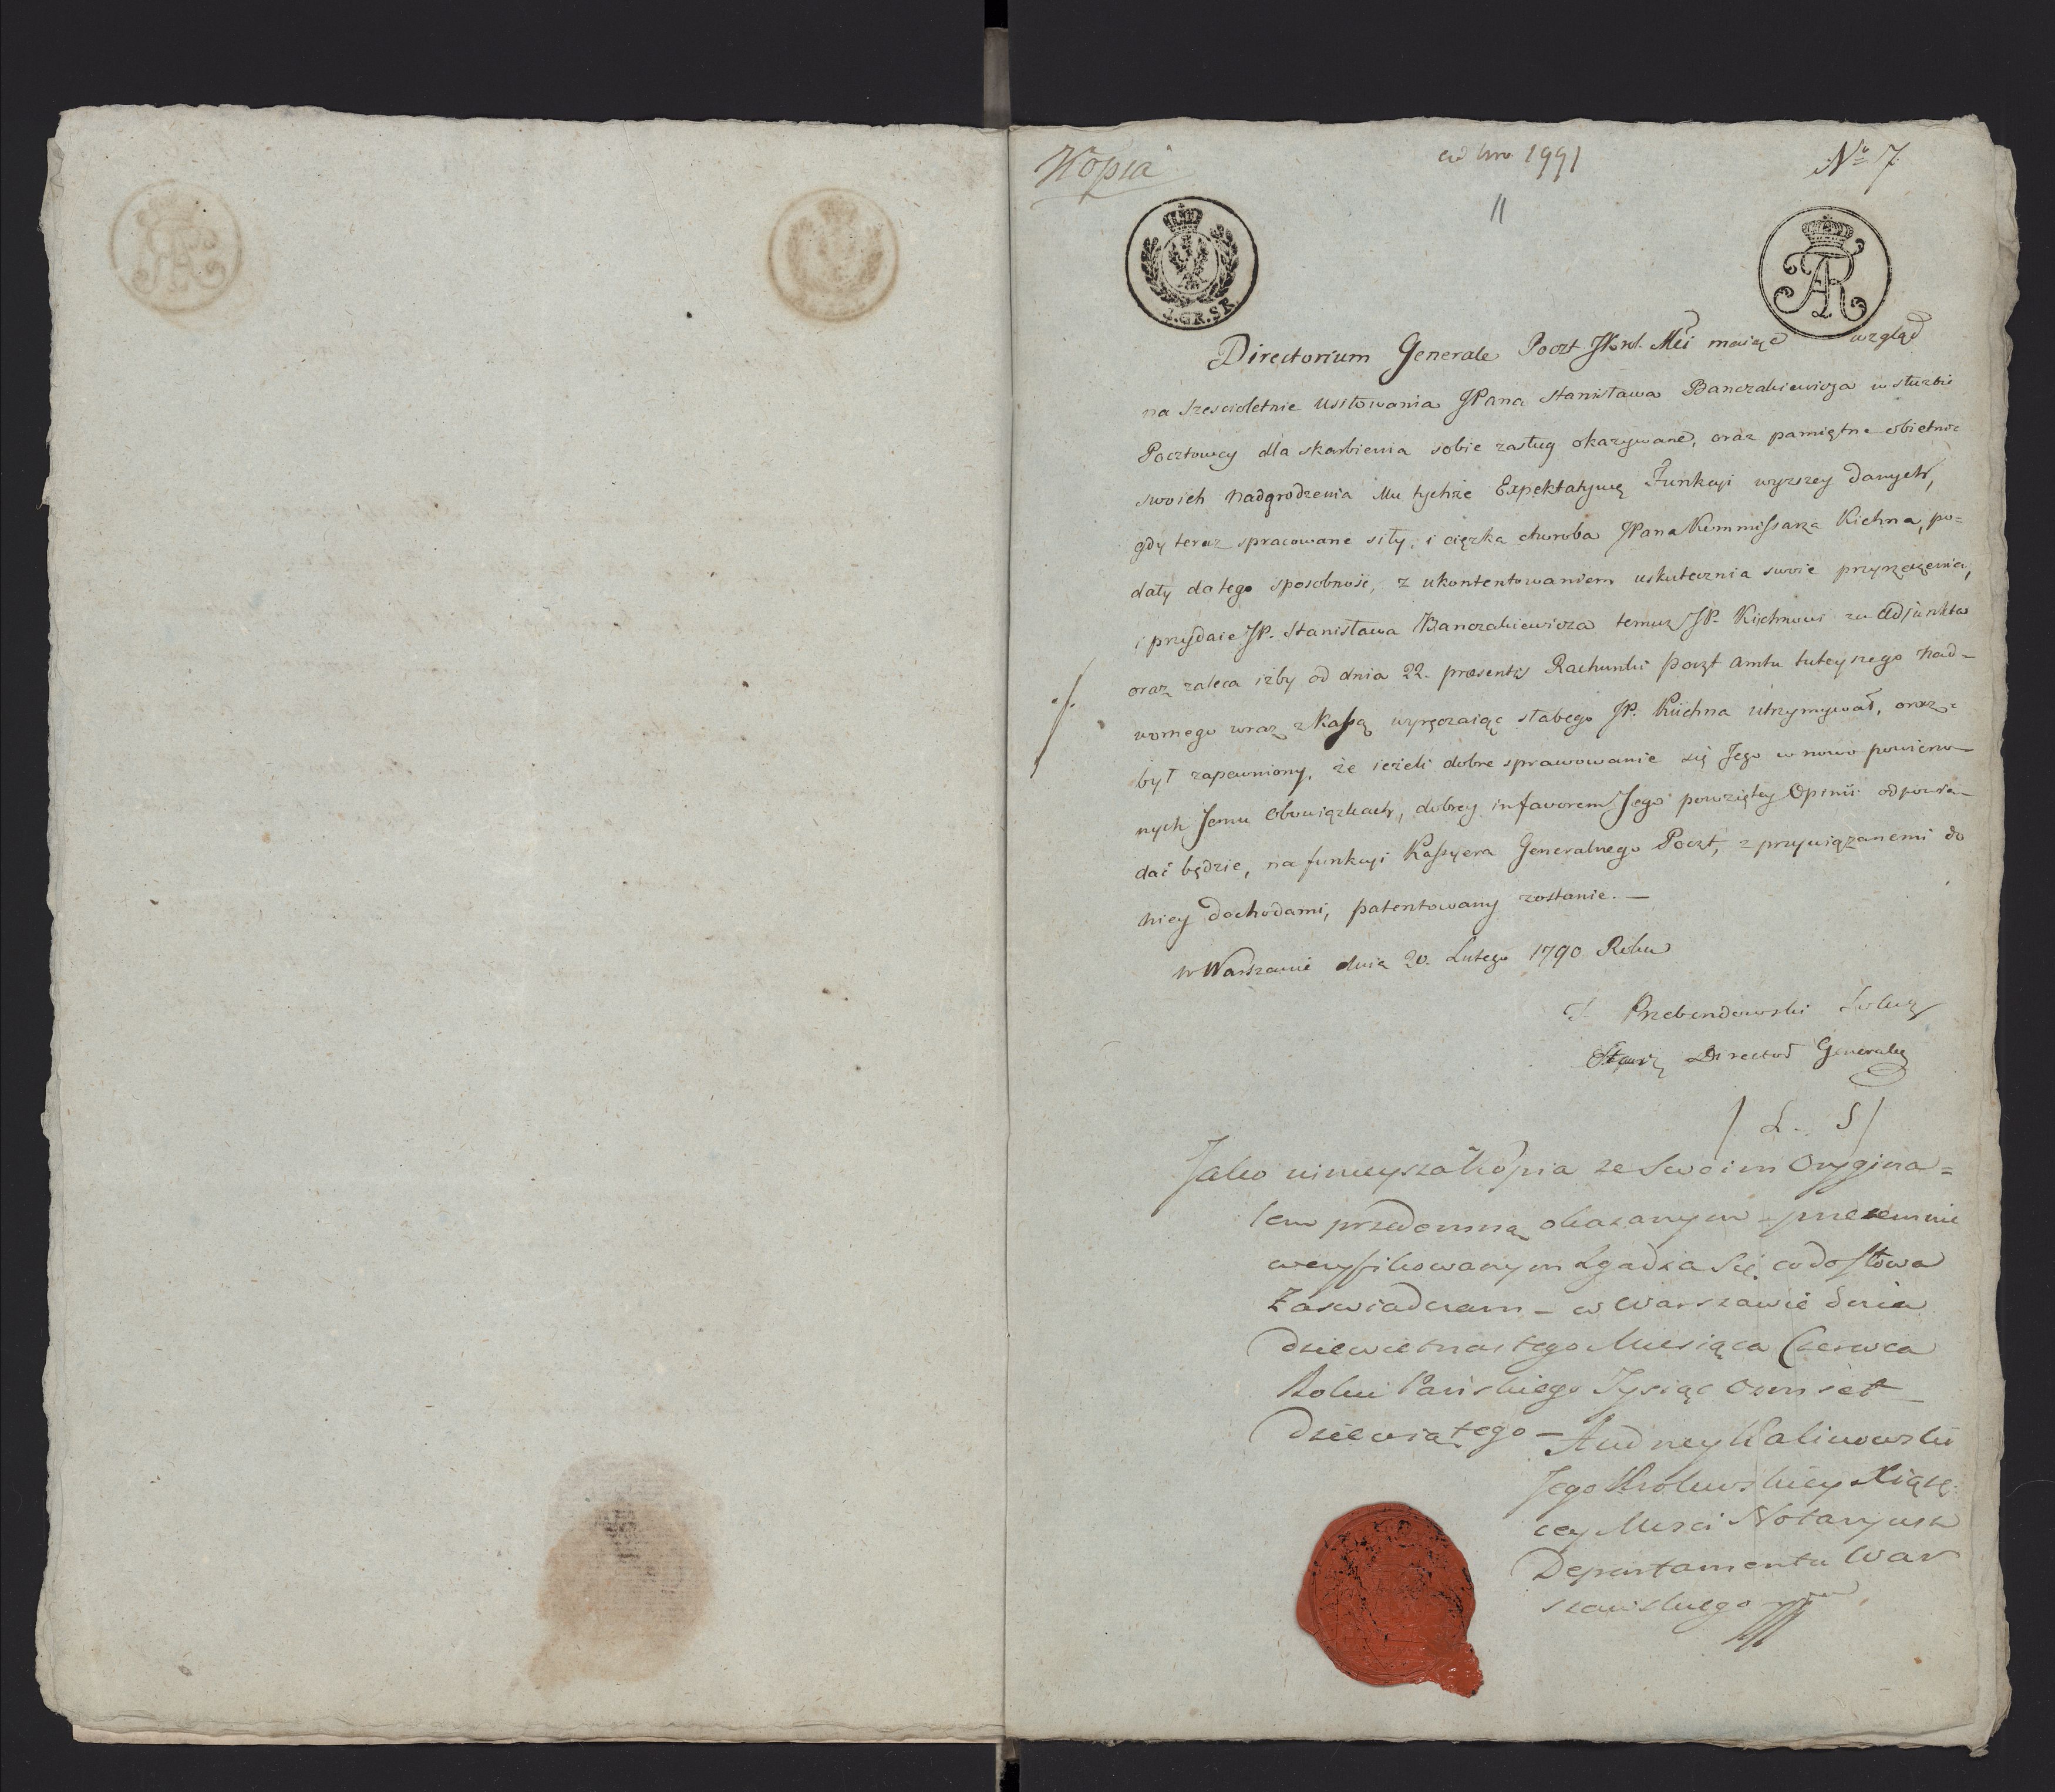 Kopia
ad Nro 1991
No 7.
11
1.GR.SR.
AR
Directorium Generale Poczt JKról. Mci maiąc wzgląd
na sześcioletnie usiłowania JPana Stanisława Banczakiewicza w służbie
Pocztowey dla skarbienia sobie zasług okazywane, oraz pamiętne obietnic
swoich nadgrodzenia Mu tychże Expektatywą Funkcyi wyższey danych,
gdy teraz spracowane siły, i ciężka choroba JPana Kommissarza Kichna, po=
dały do tego sposobność, z ukontentowaniem uskutecznia swoie przyrzeczenia,
i przydaie JP. Stanisława Banczakiewicza temuż JP. Kichnowi za Adjunkta
oraz zaleca iżby od dnia 22. præsentis Rachunki poczt Amtu tuteyszego nad-
wornego wraz z Kassą wyręczaiąc słabego JP. Kichna utrzymywał, oraz
był zapewniony, że ieżeli dobre sprawowanie się Jego w nowo powierzo-
nych Jemu obowiązkach, dobrey in favorem Jego powziętey Opinii odpowia-
dać będzie, na funkcyi Kassyera Generalnego Poczt, z przywiązanemi do
niey dochodami, patentowany zostanie. —
w Warszawie dnia 20. Lutego 1790 Roku
Przebendowski
Director Generalny
/ L. S /
Jako ninieysza Kopia ze Swoim Orygina=
łem przedemną okazanym – przezemnie
weryfikowanym zgadza się co do słowa
Zaswiadczam – w Warszawie dnia
dziewietnastego Miesiąca Czerwca
Roku Pańskiego Tysiąc Osmset
dziewiątego –
Andrzey Kalinowski
Jego Krolewskiey Xiążę.
cey Mości Notaryusz
Departamentu War
szawskiego